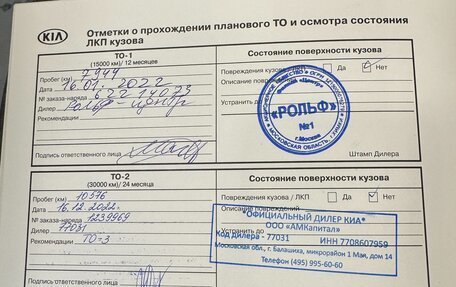 KIA
Отметки о прохождении планового ТО и осмотра состояния
ЛКП кузова
ТО-1
(15000 км)/ 12 месяцев
Состояние поверхности кузова
Пробег (км) 7944
Повреждения кузова Да Нет
Дата 16.01.2022
Описание повреждений
№ заказа-наряда 622 14023
Дилер Рольф-центр
Устранить до
Рекомендации
«РОЛЬФ»
№1
г. Москва
МОСКОВСКАЯ ОБЛАСТЬ, г. ХИМКИ
Подпись ответственного лица
Штамп Дилера
ТО-2
(30000 км)/ 24 месяца
Состояние поверхности кузова
Пробег (км) 10576
Повреждения кузова / ЛКП Да Нет
Дата 16.12.2022
Описание повреждений
№ заказа-наряда 1239969
Дилер 77031
Устранить до
Рекомендации ТО-3
"ОФИЦИАЛЬНЫЙ ДИЛЕР КИА"
ООО «АМКапитал»
Код дилера - 77031 ИНН 7708607959
Московская обл., г. Балашиха, микрорайон 1 Мая, дом 14
Телефон (495) 995-60-60
Подпись ответственного лица